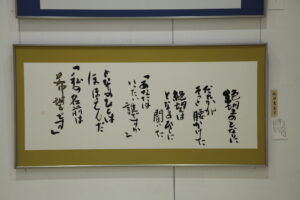 絶望のとなりに
だれかが
そっと腰かけた
絶望は
となりのひとに
聞いた
「あなたは
いったい誰ですか」
となりのひとは
ほほえんだ
「私の名前は
希望です」